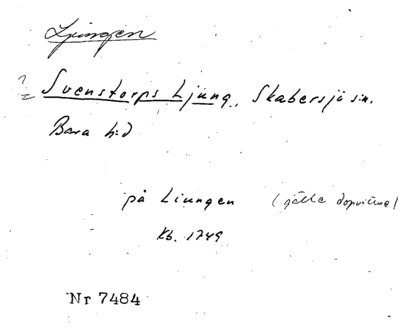 Ljungen
? Svenstorps Ljung, Skabersjö sn.
Bara hd
på Liungen (gälla dopvittne)
Kb. 1749
Nr 7484